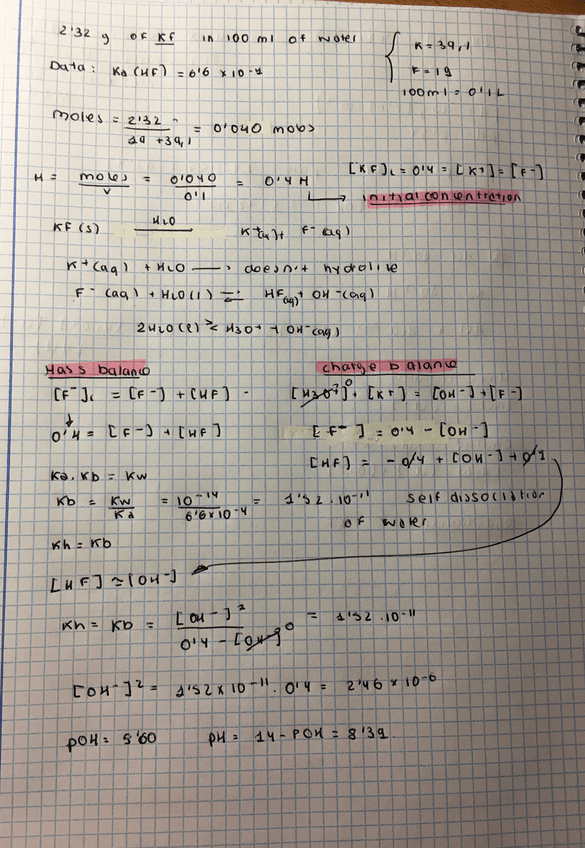 2'32 g of KF in 100 ml of water
K = 39,1
Data: Ka (HF) = 6'6 x 10-4
F = 19
100ml = 0'1L
moles = 2'32 / 19 + 39,1 = 0'040 mobs
M = moles / V = 0'040 / 0'1 = 0'4 M
[KF]i = 0'4 = [K+] = [F-]
initial concentration
KF (s) H2O → K+(aq) + F- (aq)
K+(aq) + H2O → doesn't hydrolire
F- (aq) + H2O(l) ⇌ HF(aq) + OH-(aq)
2H2O(l) ⇌ H3O+ + OH-(aq)
Mass balance
charge balance
[F-]i = [F-] + [HF]
[H3O+]0 + [K+] = [OH-] + [F-]
0'4 = [F-] + [HF]
[F-] = 0'4 - [OH-]
[HF] = - 0'4 + [OH-] + 0'4
Ka. Kb = Kw
Kb = Kw / Ka = 10-14 / 6'6x10-4 = 1'52 . 10-11
self dissociation
of water
Kh = Kb
[HF] ≈ [OH-]
Kh = Kb = [OH-]2 / 0'4 - [OH-]0 = 1'52 . 10-11
[OH-]2 = 1'52 x 10-11 . 0'4 = 2'46 x 10-6
pOH = 5'60 pH = 14 - POH = 8'39